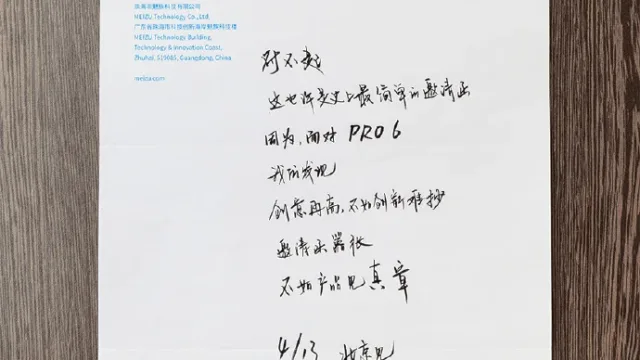 珠海市魅族科技有限公司
MEIZU Technology Co.,Ltd.
广东省珠海市科技创新海岸魅族科技楼
MEIZU Technology Building,
Technology & Innovation Coast,
Zhuhai, 519085, Guangdong, China
meizu.com
对不起
这也许是史上最简单的邀请函
因为,面对 PRO 6
我们发现
创意再高,不如创新难抄
邀请函嚣张
不如产品见真章
4/13 北京见